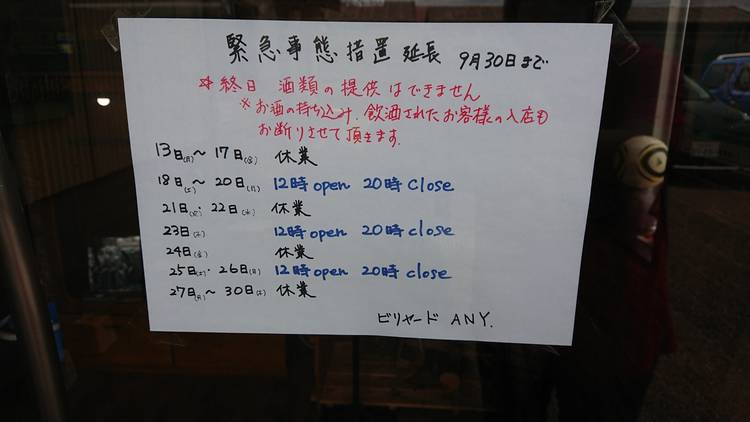 緊急事態措置 延長 9月30日まで
＊終日 酒類の提供はできません
※お酒の持ち込み、飲酒されたお客様の入店も
お断りさせて頂きます。
13日(月)～17日(金) 休業
18日(土)～20日(月) 12時open 20時close
21日(火)・22日(水) 休業
23日(木) 12時open 20時close
24日(金) 休業
25日(土)・26日(日) 12時open 20時close
27日(月)～30日(木) 休業
ビリヤード ANY.